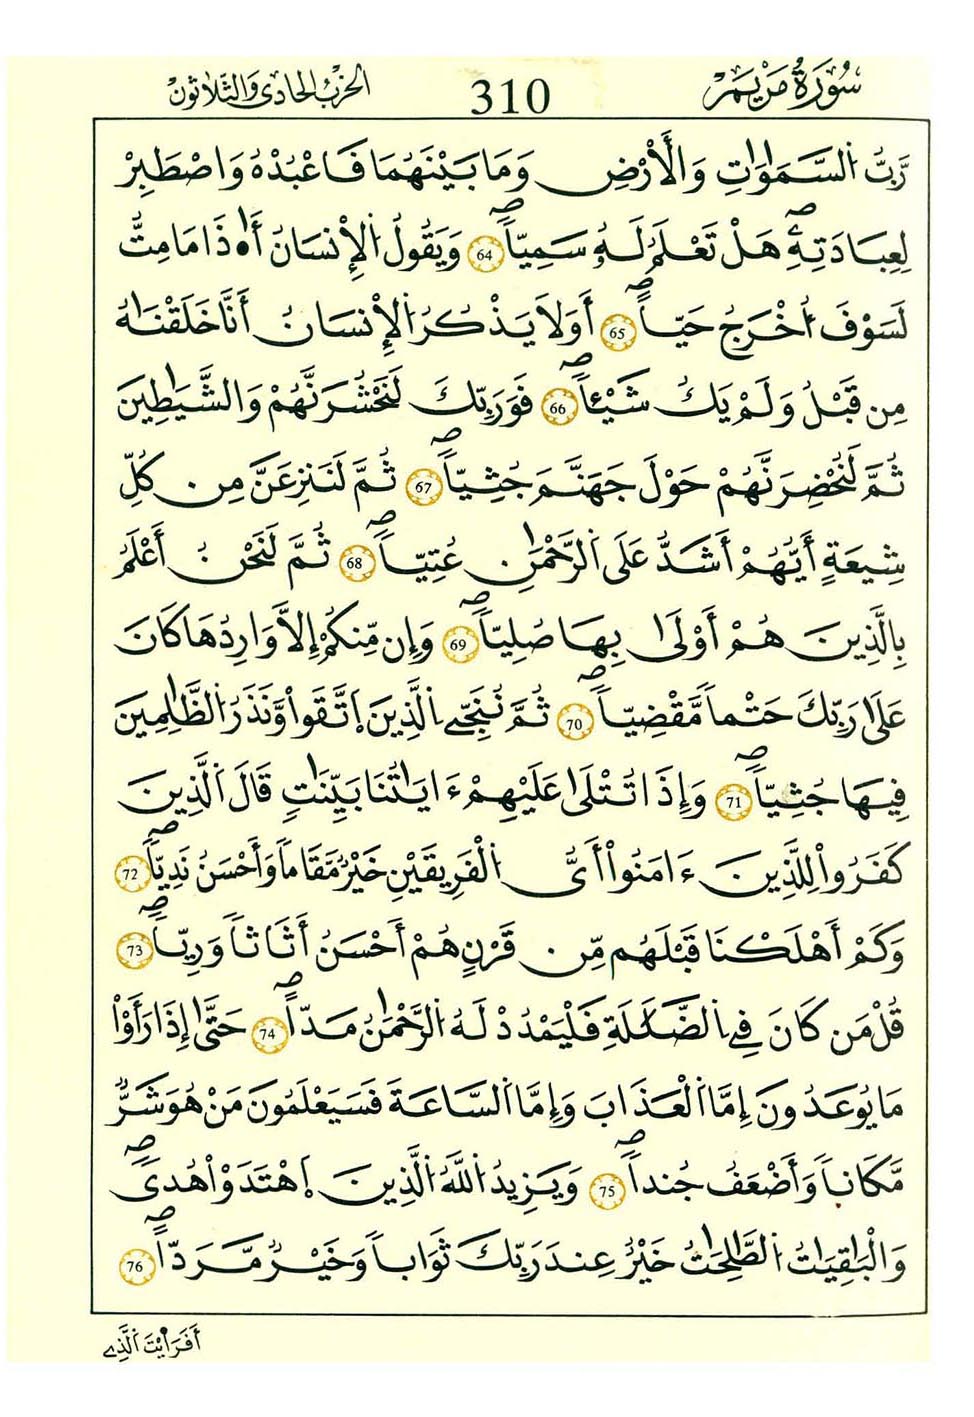 سُورَةُ مَرْيَمَ 310 الحِزْبُ الحَادِي وَالثَّلَاثُونَ
رَّبُّ اُ۬لسَّمَٰوَٰتِ وَالْأَرْضِ وَمَا بَيْنَهُمَا فَاعْبُدْهُ وَاصْطَبِرْ
لِعِبَٰدَتِهِۦۖ هَلْ تَعْلَمُ لَهُۥ سَمِيّاٗۖ 64 وَيَقُولُ اُ۬لْإِنسَٰنُ أَ•ذَا مَا مِتُّ
لَسَوْفَ أُخْرَجُ حَيّاًۖ 65 أَوَلَا يَذْكُرُ اُ۬لْإِنسَٰنُ أَنَّا خَلَقْنَٰهُ
مِن قَبْلُ وَلَمْ يَكُ شَيْـٔاٗۖ 66 فَوَرَبِّكَ لَنَحْشُرَنَّهُمْ وَالشَّيَٰطِينَ
ثُمَّ لَنُحْضِرَنَّهُمْ حَوْلَ جَهَنَّمَ جُثِيّاٗۖ 67 ثُمَّ لَنَنزِعَنَّ مِن كُلِّ
شِيعَةٍ أَيُّهُمْ أَشَدُّ عَلَى اَ۬لرَّحْمَٰنِ عُتِيّاٗۖ 68 ثُمَّ لَنَحْنُ أَعْلَمُ
بِالَّذِينَ هُمْ أَوْلَىٰ بِهَا صُلِيّاٗۖ 69 وَإِن مِّنكُمْ إِلَّا وَارِدُهَا كَانَ
عَلَىٰ رَبِّكَ حَتْماٗ مَّقْضِيّاٗۖ 70 ثُمَّ نُنَجِّي اِ۬لَّذِينَ اَ۪تَّقَواْ وَّنَذَرُ اُ۬لظَّٰلِمِينَ
فِيهَا جُثِيّاٗۖ 71 وَإِذَا تُتْلَىٰ عَلَيْهِمْ ءَايَٰتُنَا بَيِّنَٰتٖ قَالَ اَ۬لَّذِينَ
كَفَرُواْ لِلَّذِينَ ءَامَنُواْ أَيُّ اُ۬لْفَرِيقَيْنِ خَيْرٞ مَّقَاماٗ وَأَحْسَنُ نَدِيّاٗۖ 72
وَكَمْ أَهْلَكْنَا قَبْلَهُم مِّن قَرْنٍ هُمْ أَحْسَنُ أَثَٰثاٗ وَرِيّاٗۖ 73
قُلْ مَن كَانَ فِي اِ۬لضَّلَٰلَةِ فَلْيَمْدُدْ لَهُ اُ۬لرَّحْمَٰنُ مَدّاًۖ 74 حَتَّىٰ إِذَا رَأَوْاْ
مَا يُوعَدُونَ إِمَّا اَ۬لْعَذَابَ وَإِمَّا اَ۬لسَّاعَةَ فَسَيَعْلَمُونَ مَنْ هُوَ شَرّٞ
مَّكَاناٗ وَأَضْعَفُ جُنداٗۖ 75 وَيَزِيدُ اُ۬للَّهُ اُ۬لَّذِينَ اَ۪هْتَدَوْاْ هُدىٗۖ
وَالْبَٰقِيَٰتُ اُ۬لصَّٰلِحَٰتُ خَيْرٌ عِندَ رَبِّكَ ثَوَاباٗ وَخَيْرٞ مَّرَدّاًۖ 76
أَفَرَٰيْتَ اَ۬لَّذِي